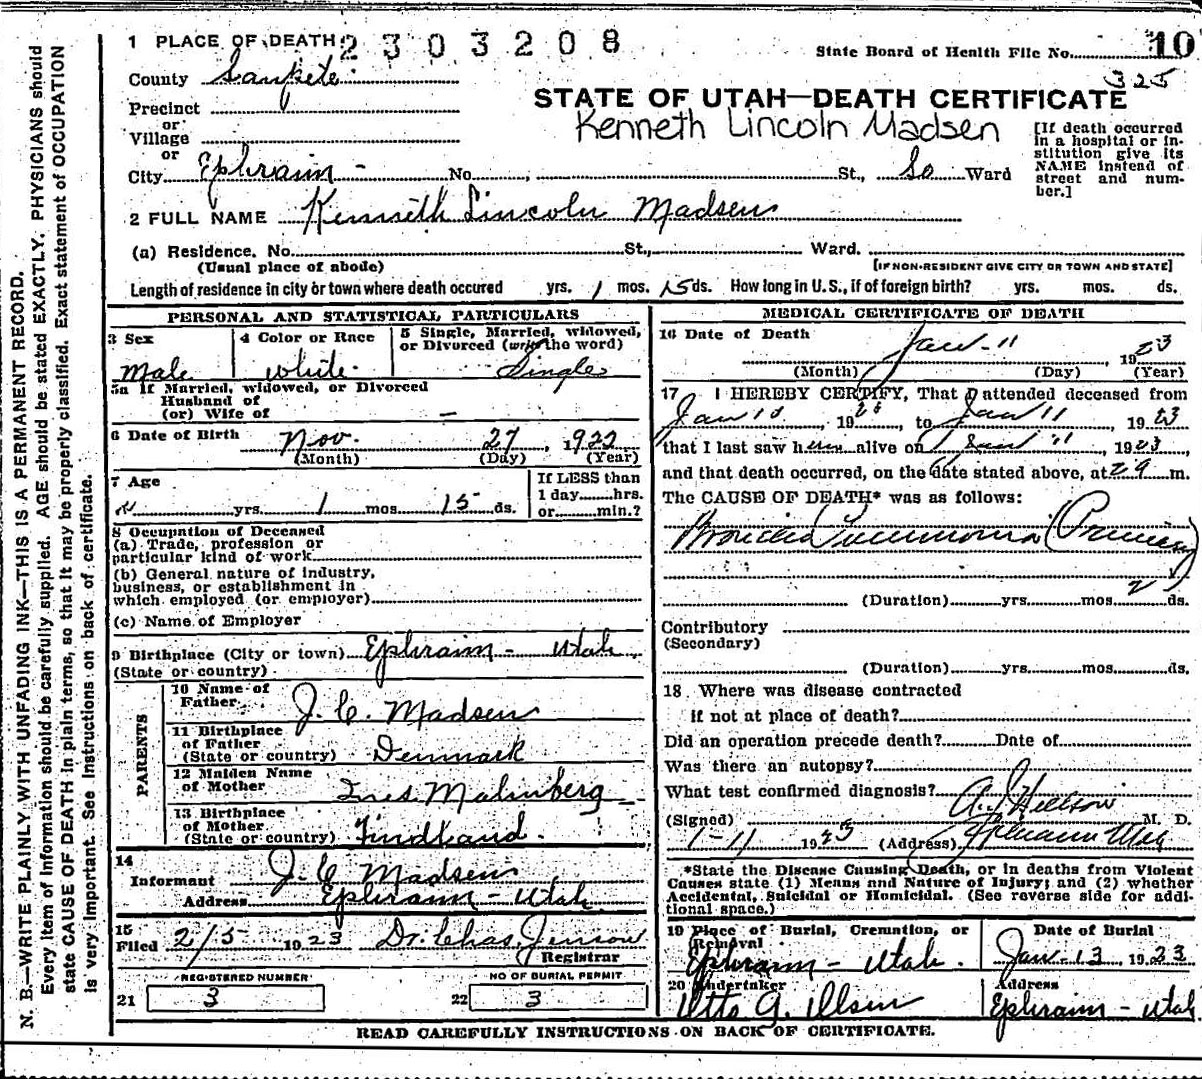 N. B.—WRITE PLAINLY WITH UNFADING INK—THIS IS A PERMANENT RECORD.
Every item of information should be carefully supplied. AGE should be stated EXACTLY. PHYSICIANS should
state CAUSE OF DEATH in plain terms, so that it may be properly classified. Exact statement of OCCUPATION
is very important. See Instructions on back of certificate.
1 PLACE OF DEATH 2303208
State Board of Health File No. 10
325
County Sanpete
Precinct
or
Village
or
STATE OF UTAH—DEATH CERTIFICATE
Kenneth Lincoln Madsen
[If death occurred
in a hospital or in-
stitution give its
NAME instead of
street and num-
ber.]
City Ephraim - No. St., So Ward
2 FULL NAME Kenneth Lincoln Madsen
(a) Residence. No. St., Ward.
(Usual place of abode) [IF NON-RESIDENT GIVE CITY OR TOWN AND STATE]
Length of residence in city or town where death occured yrs. 1 mos. 15 ds. How long in U.S., if of foreign birth? yrs. mos. ds.
PERSONAL AND STATISTICAL PARTICULARS
3 Sex
Male
4 Color or Race
White
5 Single, Married, widowed,
or Divorced (write the word)
Single
5a If Married, widowed, or Divorced
Husband of
(or) Wife of —
6 Date of Birth Nov. 27, 1922
(Month) (Day) (Year)
7 Age
yrs. 1 mos. 15 ds.
If LESS than
1 day hrs.
or min.?
8 Occupation of Deceased
(a) Trade, profession or
particular kind of work
(b) General nature of industry,
business, or establishment in
which employed (or employer)
(c) Name of Employer
9 Birthplace (City or town) Ephraim - Utah
(State or country)
PARENTS
10 Name of
Father J. C. Madsen
11 Birthplace
of Father
(State or country) Denmark
12 Maiden Name
of Mother Ines Malmberg
13 Birthplace
of Mother
(State or country) Findland.
14
Informant J. C. Madsen
Address Ephraim - Utah.
15
Filed 2/5 1923 Dr. Chas. Jenson
Registrar
REGISTERED NUMBER
21 3
NO OF BURIAL PERMIT
22 3
MEDICAL CERTIFICATE OF DEATH
16 Date of Death Jan - 11, 1923
(Month) (Day) (Year)
17 I HEREBY CERTIFY, That I attended deceased from
Jan 10, 1923, to Jan 11 1923
that I last saw him alive on Jan 11, 1923,
and that death occurred, on the date stated above, at m.
The CAUSE OF DEATH* was as follows:
Broncho Pneumonia (Primary)
(Duration) yrs. mos. 2 ds.
Contributory
(Secondary)
(Duration) yrs. mos. ds.
18 Where was disease contracted
if not at place of death?
Did an operation precede death? Date of
Was there an autopsy?
What test confirmed diagnosis?
(Signed) M. D.
1-11 1923 (Address) Ephraim Utah
*State the Disease Causing Death, or in deaths from Violent
Causes state (1) Means and Nature of Injury; and (2) whether
Accidental, Suicidal or Homicidal. (See reverse side for addi-
tional space.)
19 Place of Burial, Cremation, or
Removal
Ephraim - Utah.
Date of Burial
Jan - 13 1923
20 Undertaker
Otto G. Olson
Address
Ephraim - Utah.
READ CAREFULLY INSTRUCTIONS ON BACK OF CERTIFICATE.